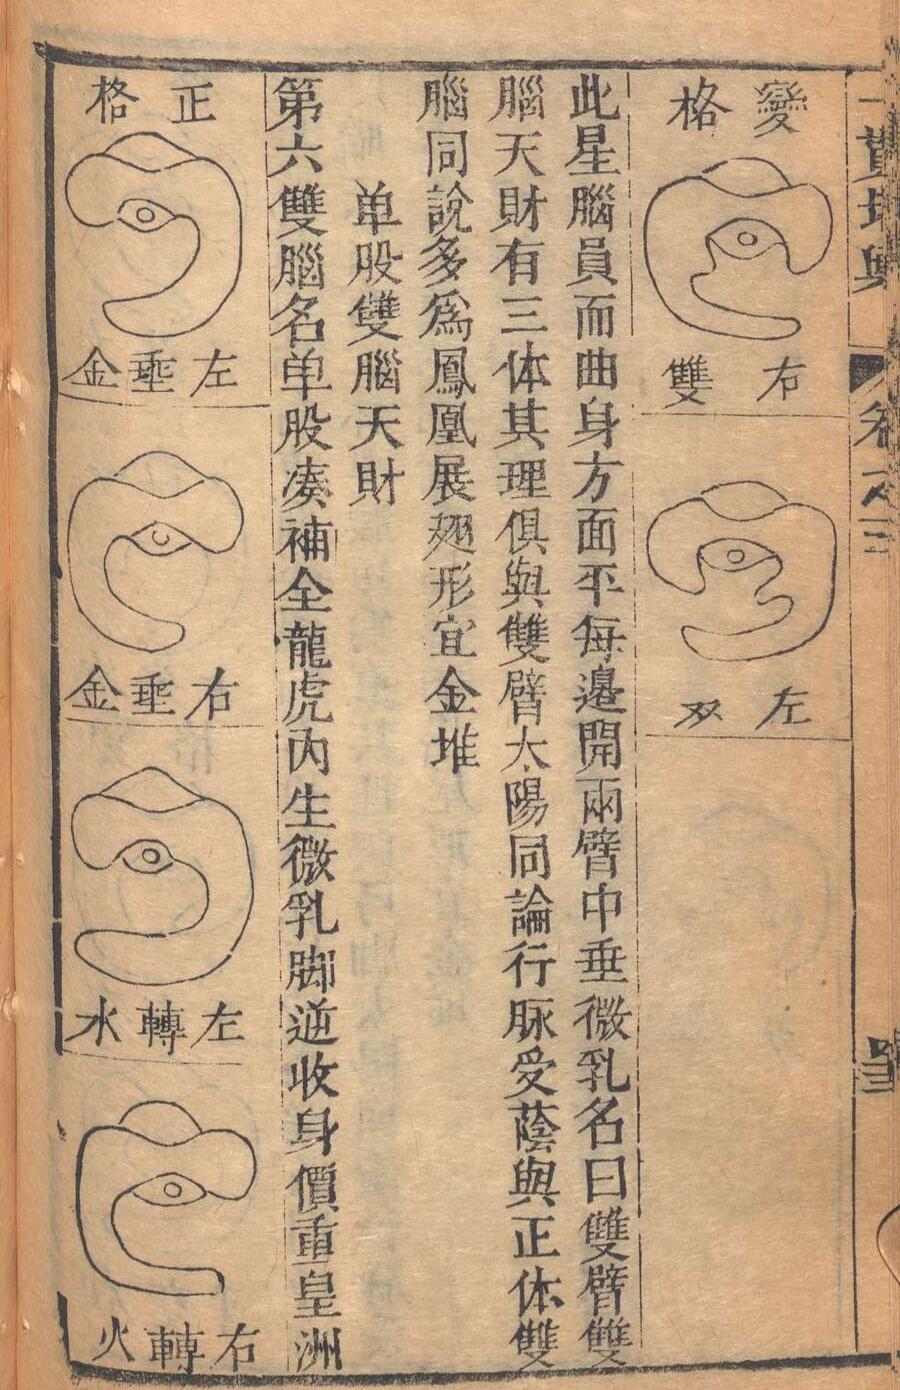 一貫堪輿
卷之三
變格
右雙
左双
此星腦員而曲身方面平每邉開兩臂中垂微乳名曰雙臂雙
腦天財有三体其理俱與雙臂太陽同論行脉受蔭與正体雙
腦同說多爲鳳凰展翅形宜金堆
单股雙腦天財
第六雙腦名单股凑補全龍虎內生微乳脚逆收身價重皇洲
正格
左垂金
右垂金
左轉水
右轉火